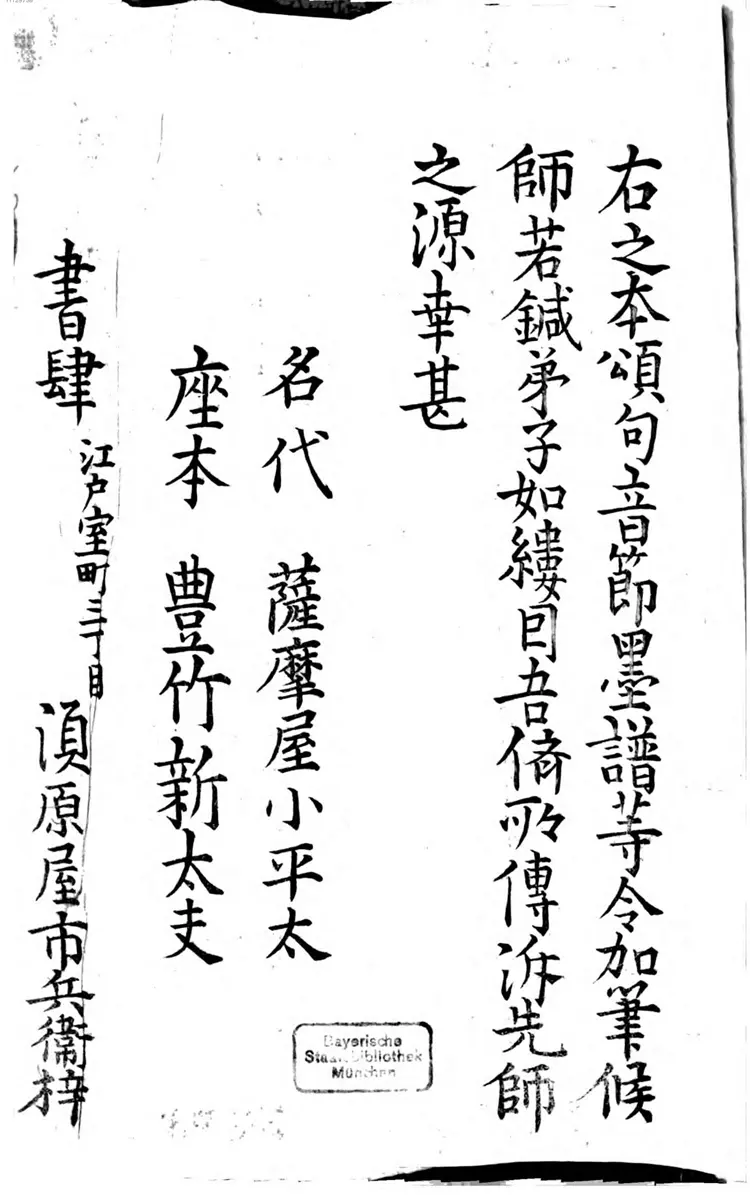 右之本頌句音節墨譜等令加筆候
師若鍼弟子如縷因吾儕所傳泝先師
之源幸甚
名代 薩摩屋小平太
座本 豊竹新太夫
書肆 江戸室町三丁目 須原屋市兵衛梓
Bayerische
Staatsbibliothek
München